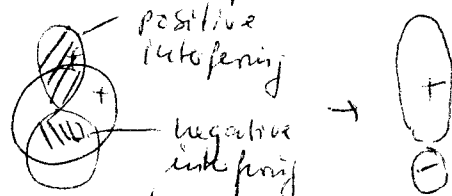 positive
interfering
+
+
negative
interfring
→
+
−